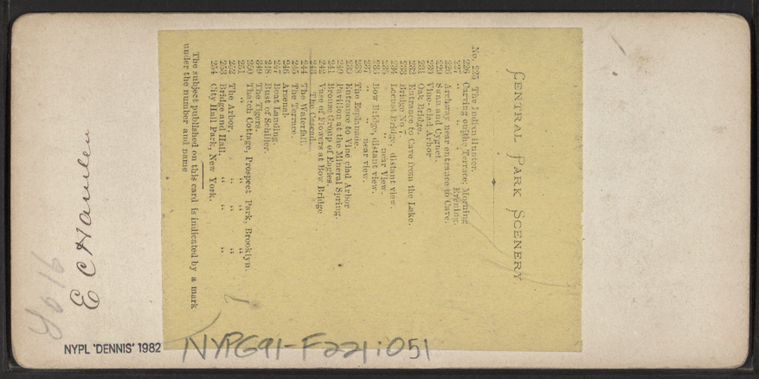 CENTRAL PARK SCENERY
No. 225 The Indian Hunter.
226 Carving on the Terrace; Morning
227 " " " Evening.
228 Archway near entrance to Cave.
229 Swan and Cygnet.
230 Vine-clad Arbor
231 Oak Bridge.
232 Entrance to Cave from the Lake.
233 Bridge No 7.
234 Bridge, distant view.
235 " near View.
236 Bow Bridge, distant view.
237 " " near view.
238 The Esplanade.
239 Entrance to Vine clad Arbor
240 Pavilion at the Mineral Spring.
241 Bronze Group of Eagles.
242 Vase of Flowers at Bow Bridge
243 The Casino.
244 The Waterfall.
245 The Terrace.
246 Arsenal.
247 Boat Landing.
248 Bust of Schiller.
249 The Tigers.
250 Thatch Cottage, Prospect Park, Brooklyn.
251 " " " "
252 The Arbor, " " "
253 Bridge and Hall. " " "
254 City Hall Park, New York.
The subject published on this card is indicated by a mark
under the number and name
E C Hamlen
NYPL "DENNIS" 1982
NYPG91-F221:051